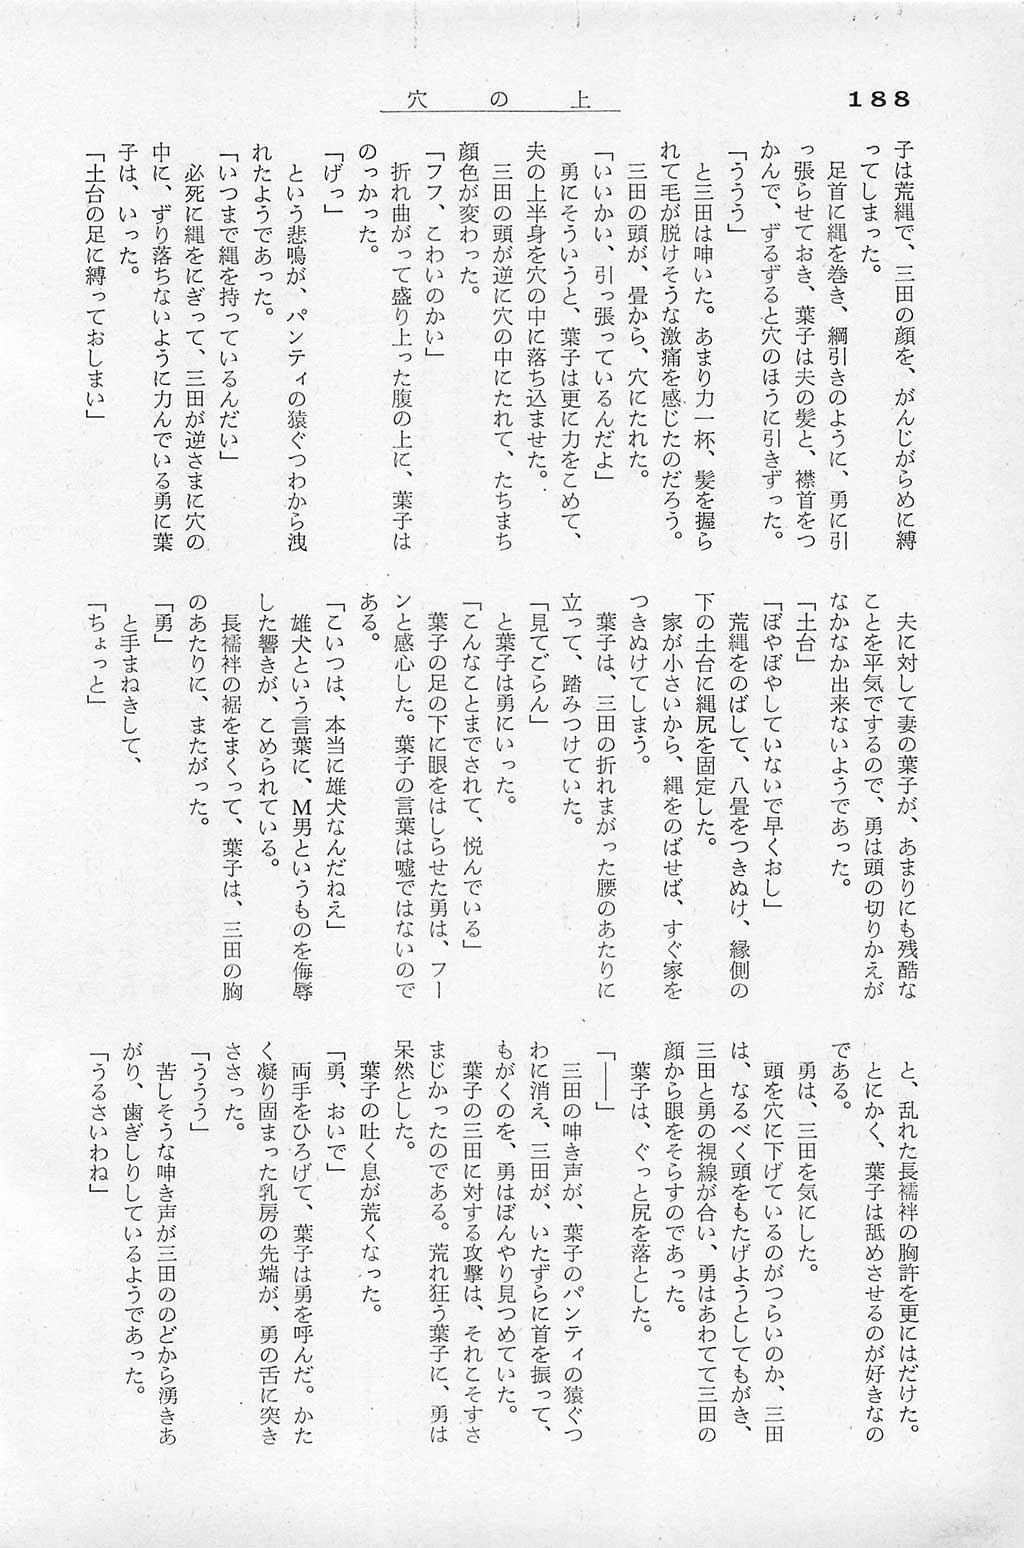 188
穴の上
子は荒縄で、三田の顔を、がんじがらめに縛
ってしまった。
足首に縄を巻き、綱引きのように、勇に引
っ張らせておき、葉子は夫の髪と、襟首をつ
かんで、ずるずると穴のほうに引きずった。
「ううう」
と三田は呻いた。あまり力一杯、髪を握ら
れて毛が脱けそうな激痛を感じたのだろう。
三田の頭が、畳から、穴にたれた。
「いいかい、引っ張っているんだよ」
勇にそういうと、葉子は更に力をこめて、
夫の上半身を穴の中に落ち込ませた。
三田の頭が逆に穴の中にたれて、たちまち
顔色が変わった。
「フフ、こわいのかい」
折れ曲がって盛り上った腹の上に、葉子は
のっかった。
「げっ」
という悲鳴が、パンティの猿ぐつわから洩
れたようであった。
「いつまで縄を持っているんだい」
必死に縄をにぎって、三田が逆さまに穴の
中に、ずり落ちないように力んでいる勇に葉
子は、いった。
「土台の足に縛っておしまい」
夫に対して妻の葉子が、あまりにも残酷な
ことを平気でするので、勇は頭の切りかえが
なかなか出来ないようであった。
「土台」
「ぼやぼやしていないで早くおし」
荒縄をのばして、八畳をつきぬけ、縁側の
下の土台に縄尻を固定した。
家が小さいから、縄をのばせば、すぐ家を
つきぬけてしまう。
葉子は、三田の折れまがった腰のあたりに
立って、踏みつけていた。
「見てごらん」
と葉子は勇にいった。
「こんなことまでされて、悦んでいる」
葉子の足の下に眼をはしらせた勇は、フー
ンと感心した。葉子の言葉は嘘ではないので
ある。
「こいつは、本当に雄犬なんだねえ」
雄犬という言葉に、M男というものを侮辱
した響きが、こめられている。
長襦袢の裾をまくって、葉子は、三田の胸
のあたりに、またがった。
「勇」
と手まねきして、
「ちょっと」
と、乱れた長襦袢の胸許を更にはだけた。
とにかく、葉子は舐めさせるのが好きなの
である。
勇は、三田を気にした。
頭を穴に下げているのがつらいのか、三田
は、なるべく頭をもたげようとしてもがき、
三田と勇の視線が合い、勇はあわてて三田の
顔から眼をそらすのであった。
葉子は、ぐっと尻を落とした。
「――」
三田の呻き声が、葉子のパンティの猿ぐつ
わに消え、三田が、いたずらに首を振って、
もがくのを、勇はぼんやり見つめていた。
葉子の三田に対する攻撃は、それこそすさ
まじかったのである。荒れ狂う葉子に、勇は
呆然とした。
葉子の吐く息が荒くなった。
「勇、おいで」
両手をひろげて、葉子は勇を呼んだ。かた
く凝り固まった乳房の先端が、勇の舌に突き
ささった。
「ううう」
苦しそうな呻き声が三田ののどから湧きあ
がり、歯ぎしりしているようであった。
「うるさいわね」